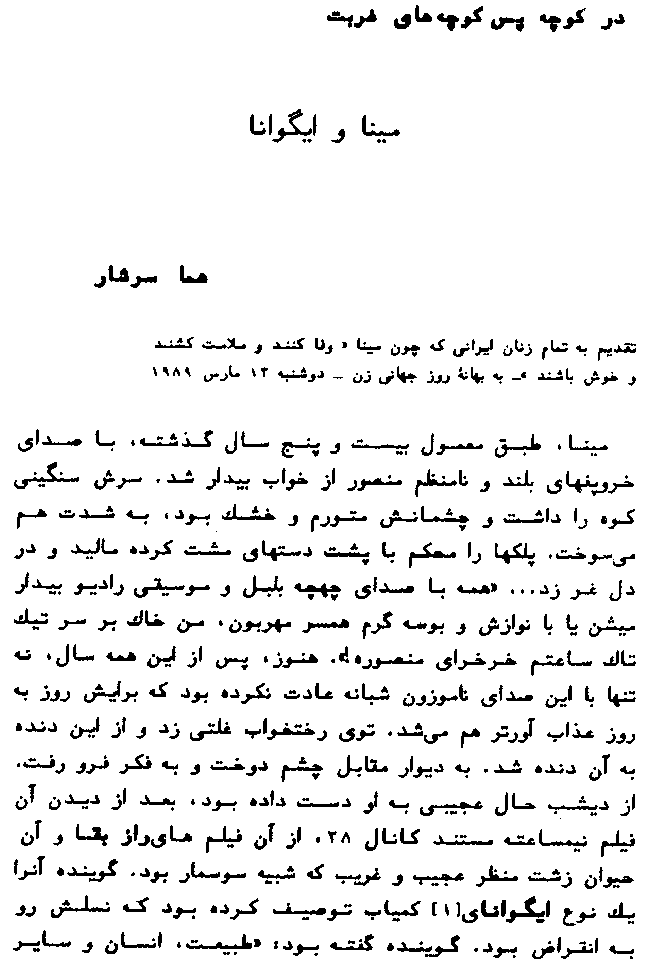 در کوچه پس کوچه‌های غربت
مینا و ایگوانا
هما سرشار
تقدیم به تمام زنان ایرانی که چون مینا « وفا کنند و ملامت کشند
و خوش باشند »ـ به بهانهٔ روز جهانی زن ـ دوشنبه ۱۳ مارس ۱۹۸۹
مینا، طبق معمول بیست و پنج سال گذشته، با صدای
خروپفهای بلند و نامنظم منصور از خواب بیدار شد. سرش سنگینی
کوه را داشت و چشمانش متورم و خشك بود، به شدت هم
می‌سوخت. پلکها را محکم با پشت دستهای مشت کرده مالید و در
دل غر زد... «همه با صدای چهچه بلبل و موسیقی رادیو بیدار
میشن یا با نوازش و بوسه گرم همسر مهربون، من خاك بر سر تیك
تاك ساعتم خرخرای منصوره!». هنوز، پس از این همه سال، نه
تنها با این صدای ناموزون شبانه عادت نکرده بود که برایش روز به
روز عذاب آورتر هم می‌شد. توی رختخواب غلتی زد و از این دنده
به آن دنده شد. به دیوار مقابل چشم دوخت و به فکر فرو رفت.
از دیشب حال عجیبی به او دست داده بود، بعد از دیدن آن
فیلم نیمساعته مستند کانال ۲۸، از آن فیلم های راز بقا و آن
حیوان زشت منظر عجیب و غریب که شبیه سوسمار بود. گوینده آنرا
یك نوع ایگوانای[۱] کمیاب توصیف کرده بود که نسلش رو
به انقراض بود. گوینده گفته بود: «طبیعت، انسان و سایر